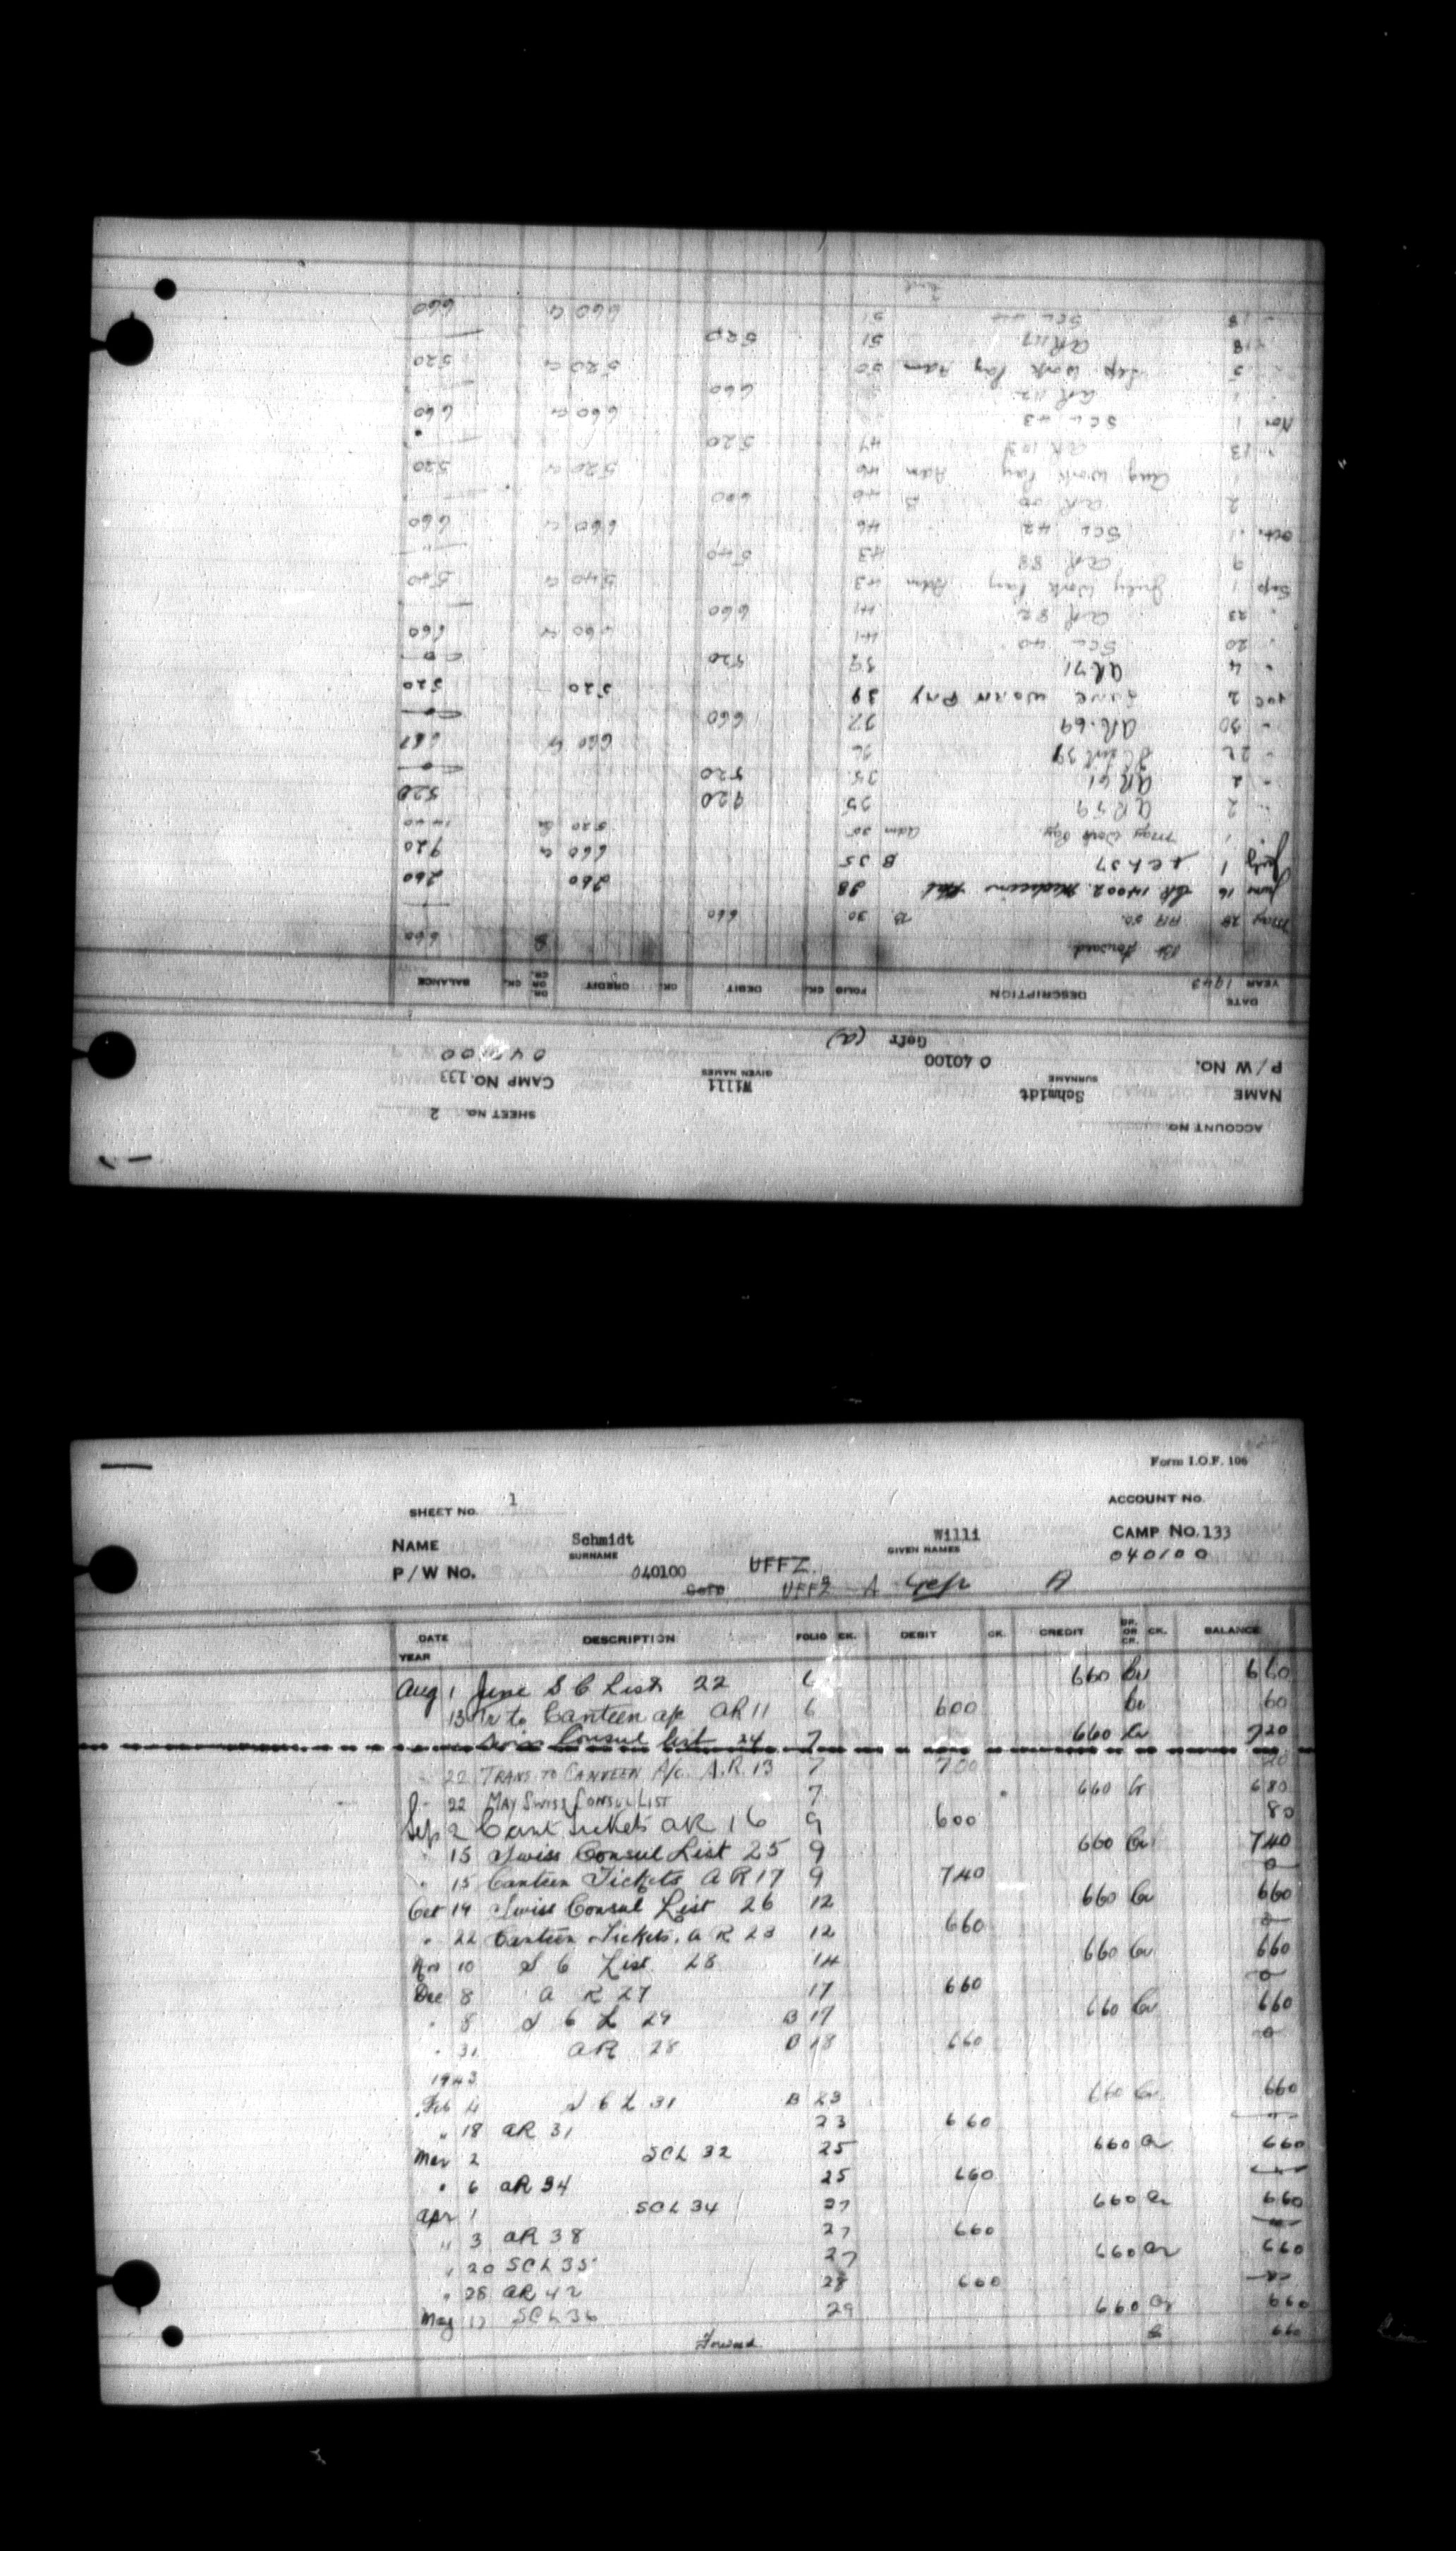 Form I.O.F. 106
SHEET NO. 1 ACCOUNT NO.
NAME Schmidt Willi CAMP NO. 133
SURNAME GIVEN NAMES
P/W NO. 040100 UFFZ. 040100
Gefr UFFZ A Gefr A
DATE DESCRIPTION FOLIO CK. DEBIT CK. CREDIT DR. OR CR. CK. BALANCE
YEAR
Aug 1 June S C List 22 6 660 Cr 660
13 Tr to Canteen a/c AR 11 6 600 Cr 60
Swiss Consul list 24 7 660 Cr 720
22 TRANS. TO CANTEEN A/C. A.R. 13 7 700 20
22 MAY SWISS CONSUL LIST 7 660 Cr 680
Sep 2 Cant. tickets AR 16 9 600 80
" 15 Swiss Consul List 25 9 660 Cr 740
" 15 Canteen Tickets AR 17 9 740 0
Oct 14 Swiss Consul List 26 12 660 Cr 660
" 22 Canteen Tickets. A R 23 12 660 0
Nov 10 S C List 28 14 660 Cr 660
Dec 8 A R 27 17 660 0
" 8 S C L 29 B 17 660 Cr 660
" 31 AR 28 B 18 660 0
1943
Feb 4 S C L 31 B 23 660 Cr 660
" 18 AR 31 23 660
Mar 2 SCL 32 25 660 Cr 660
" 6 AR 34 25 660
Apr 1 SCL 34 27 660 Cr 660
" 3 AR 38 27 660
" 20 SCL 35 27 660 Cr 660
" 28 AR 42 28 660
May SCL 36 29 660 Cr 660
Forward 660
SHEET NO. 2
ACCOUNT NO.
NAME Schmidt Willi CAMP NO. 133
SURNAME GIVEN NAMES
P/W NO. 040100 040100
Gefr (a)
DATE DESCRIPTION FOLIO CK. DEBIT CK. CREDIT DR. OR CR. CK. BALANCE
YEAR 1943
Br forward 660
May 28 AR 50. B 30 660
June 16 CR 14002. Medicine Hat 28 260 260
July 1 SCL 37 B 35 660 Cr 920
" 1 May Work Pay Adm 35 520 Cr
" 2 AR 59 35 920 520
" 2 AR 61 35 520 0
" 22 39 36 660 Cr
" 30 AR. 69 37 660 0
Aug 2 June Work Pay 39 520 520
" 4 AR 71 39 520 0
" 20 SCL 40 41 660 Cr 660
" 23 AR 82 41 660
Sep 1 July Work Pay Adm 43 540 Cr 540
9 AR 88 43 540
Oct. 1 SCL 42 46 660 Cr 660
2 AR B 46 660
1 Aug Work Pay Adm 46 520 Cr 520
" 13 AR 47 520
Nov 1 SCL 43 660 Cr 660
" 1 AR 112 660
" 5 Sep. Work Pay Adm 50 520 Cr 520
" 8 AR 117 51 520
" 18 SCL 44 51 660 Cr 660